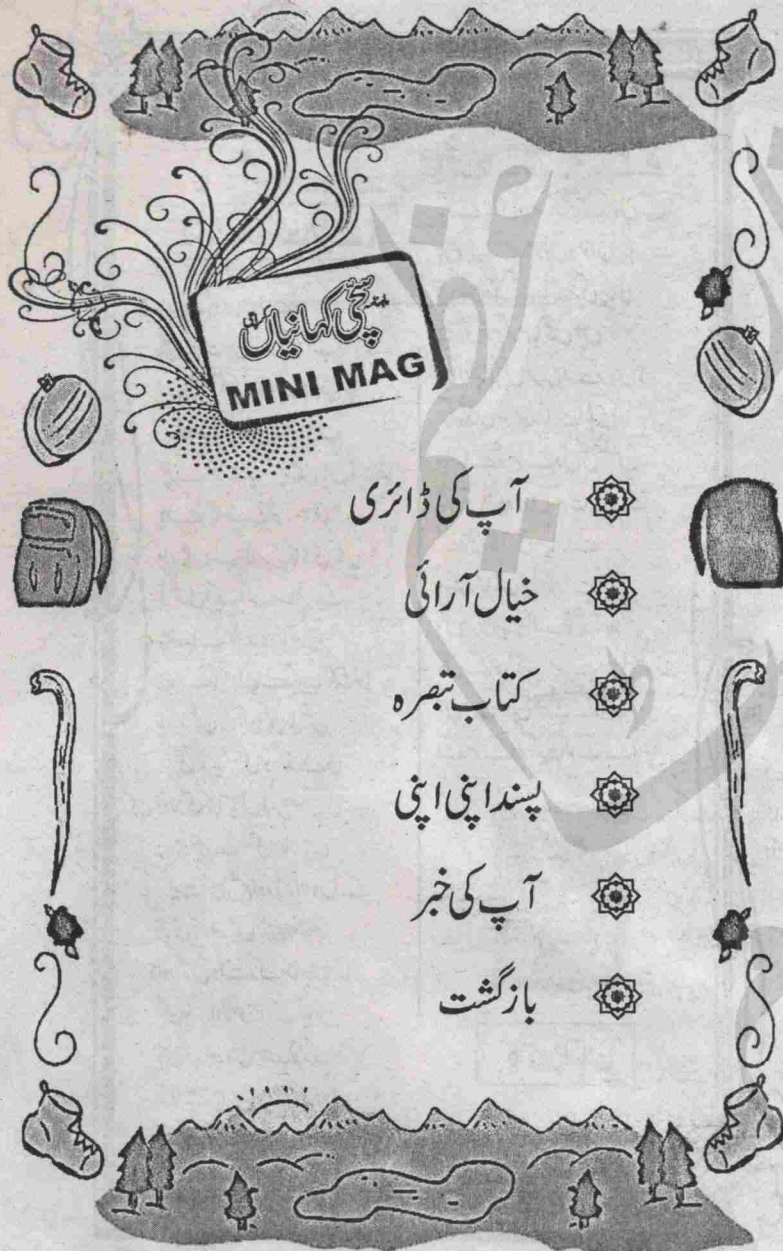 سچی کہانیاں
MINI MAG
آپ کی ڈائری
خیال آرائی
کتاب تبصرہ
پسند اپنی اپنی
آپ کی خبر
بازگشت